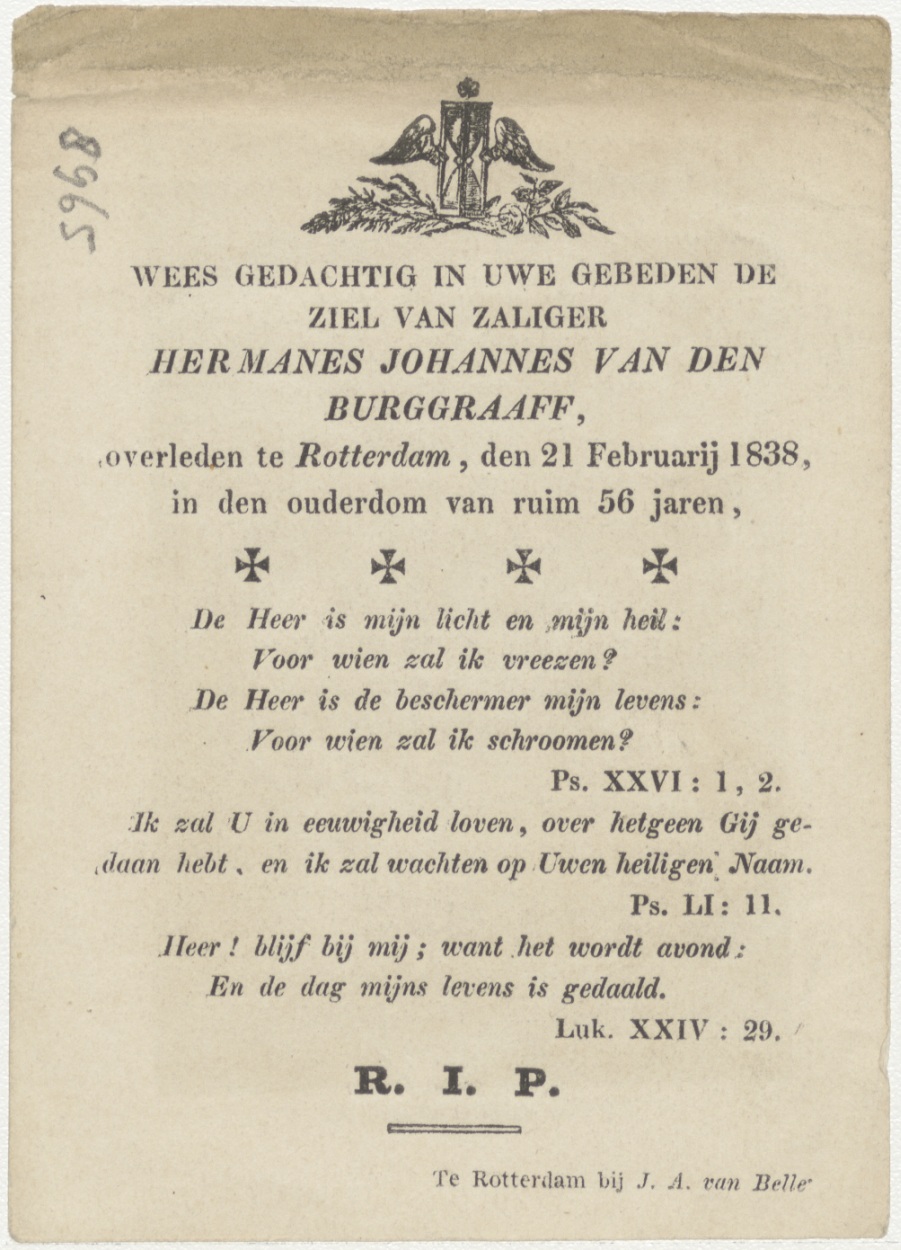 8965
WEES GEDACHTIG IN UWE GEBEDEN DE
ZIEL VAN ZALIGER
HERMANES JOHANNES VAN DEN
BURGGRAAFF,
overleden te Rotterdam, den 21 Februarij 1838,
in den ouderdom van ruim 56 jaren,
De Heer is mijn licht en mijn heil:
Voor wien zal ik vreezen?
De Heer is de beschermer mijn levens:
Voor wien zal ik schroomen?
Ps. XXVI: 1, 2.
Ik zal U in eeuwigheid loven, over hetgeen Gij ge-
daan hebt, en ik zal wachten op Uwen heiligen Naam.
Ps. LI: 11.
Heer! blijf bij mij; want het wordt avond:
En de dag mijns levens is gedaald.
Luk. XXIV: 29.
R. I. P.
Te Rotterdam bij J. A. van Belle